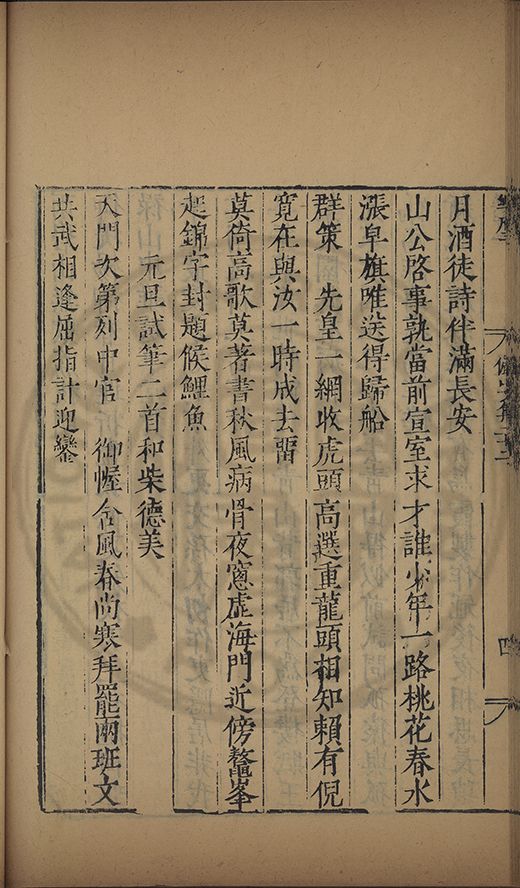 月酒徒詩伴滿長安
山公啓事孰當前宣室求才誰少年一路桃花春水
漲皁旗唯送得歸船
群策　先皇一網收虎頭高選重龍頭相知賴有倪
寬在與汝一時成去畱
莫倚高歌莫著書秋風病骨夜窻虛海門近傍鼇峯
起錦字封題候鯉魚
元旦試筆二首和柴德美
天門次第列中官　御幄含風春尚寒拜罷兩班文
共武相逢屈指計迎鑾
四